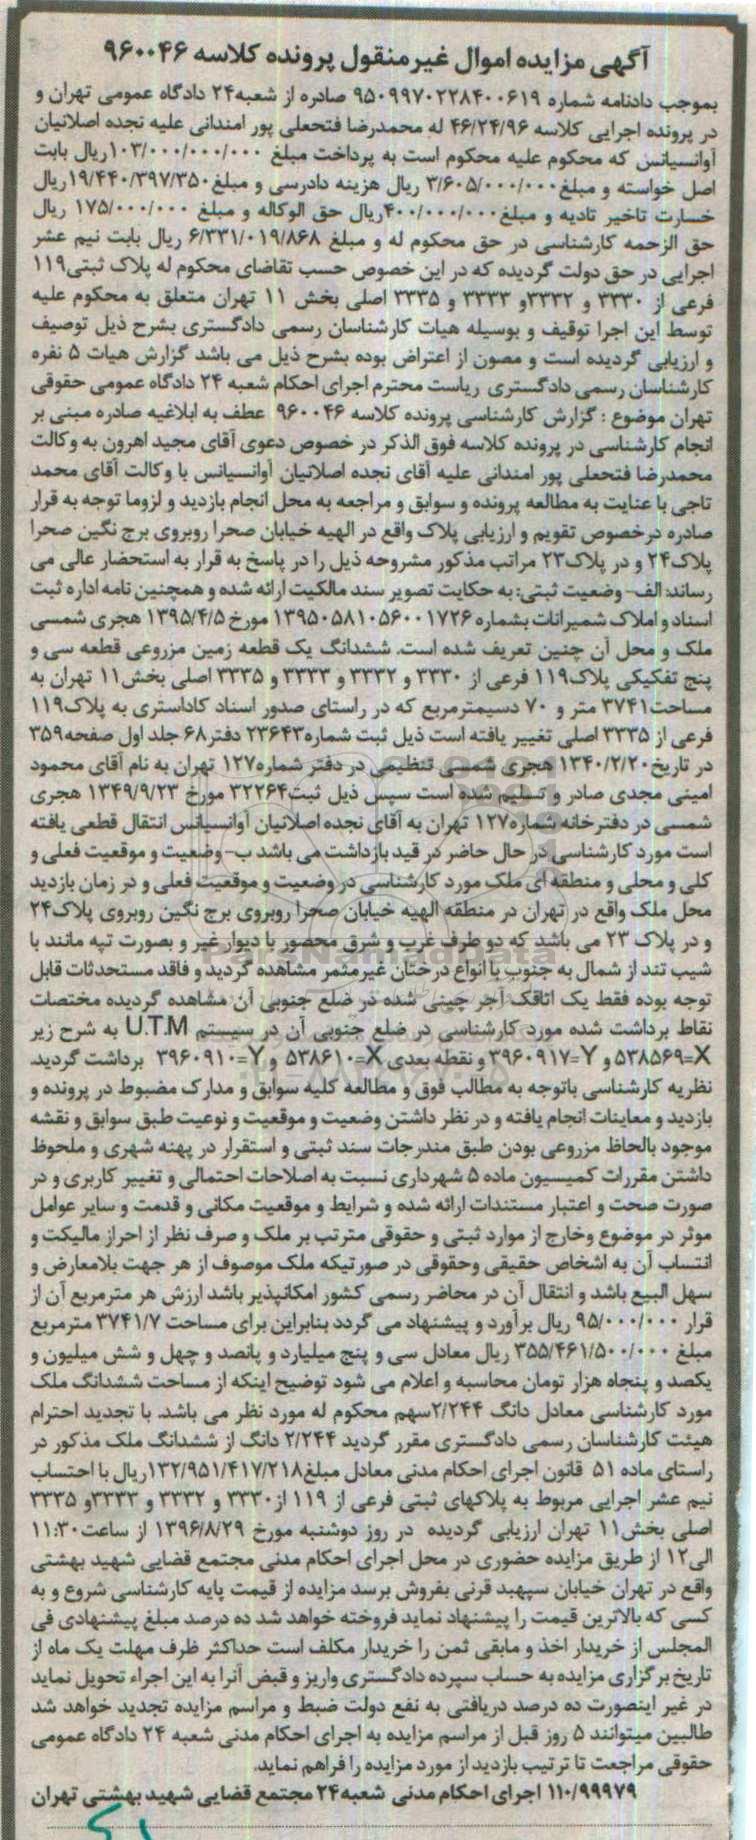 آگهی مزایده اموال غیرمنقول پرونده کلاسه ۹۶۰۰۴۶
بموجب دادنامه شماره ۹۵۰۹۹۷۰۲۲۸۴۰۰۶۱۹ صادره از شعبه۲۴ دادگاه عمومی تهران و
در پرونده اجرایی کلاسه ۴۶/۲۴/۹۶ له محمدرضا فتحعلی پور امندانی علیه نجده اصلانیان
آوانسیانس که محکوم علیه محکوم است به پرداخت مبلغ ۱۰۳/۰۰۰/۰۰۰/۰۰۰ریال بابت
اصل خواسته و مبلغ۳/۶۰۵/۰۰۰/۰۰۰ ریال هزینه دادرسی و مبلغ۱۹/۴۴۰/۳۹۷/۳۵۰ریال
خسارت تاخیر تادیه و مبلغ۴۰۰/۰۰۰/۰۰۰ریال حق الوکاله و مبلغ ۱۷۵/۰۰۰/۰۰۰ ریال
حق الزحمه کارشناسی در حق محکوم له و مبلغ ۶/۳۳۱/۰۱۹/۸۶۸ ریال بابت نیم عشر
اجرایی در حق دولت گردیده که در این خصوص حسب تقاضای محکوم له پلاک ثبتی۱۱۹
فرعی از ۳۳۳۰ و ۳۳۳۲و ۳۳۳۳ و ۳۳۳۵ اصلی بخش ۱۱ تهران متعلق به محکوم علیه
توسط این اجرا توقیف و بوسیله هیات کارشناسان رسمی دادگستری بشرح ذیل توصیف
و ارزیابی گردیده است و مصون از اعتراض بوده بشرح ذیل می باشد گزارش هیات ۵ نفره
کارشناسان رسمی دادگستری ریاست محترم اجرای احکام شعبه ۲۴ دادگاه عمومی حقوقی
تهران موضوع : گزارش کارشناسی پرونده کلاسه ۹۶۰۰۴۶ عطف به ابلاغیه صادره مبنی بر
انجام کارشناسی در پرونده کلاسه فوق الذکر در خصوص دعوی آقای مجید اهرون به وکالت
محمدرضا فتحعلی پور امندانی علیه آقای نجده اصلانیان آوانسیانس با وکالت آقای محمد
تاجی با عنایت به مطالعه پرونده و سوابق و مراجعه به محل انجام بازدید و لزوما توجه به قرار
صادره درخصوص تقویم و ارزیابی پلاک واقع در الهیه خیابان صحرا روبروی برج نگین صحرا
پلاک۲۴ و در پلاک۲۳ مراتب مذکور مشروحه ذیل را در پاسخ به قرار به استحضار عالی می
رساند: الف- وضعیت ثبتی: به حکایت تصویر سند مالکیت ارائه شده و همچنین نامه اداره ثبت
اسناد و املاک شمیرانات بشماره ۱۳۹۵۰۵۸۱۰۵۶۰۰۱۷۲۶ مورخ ۱۳۹۵/۴/۵ هجری شمسی
ملک و محل آن چنین تعریف شده است. ششدانگ یک قطعه زمین مزروعی قطعه سی و
پنج تفکیکی پلاک۱۱۹ فرعی از ۳۳۳۰ و ۳۳۳۲ و ۳۳۳۳ و ۳۳۳۵ اصلی بخش۱۱ تهران به
مساحت۳۷۴۱ متر و ۷۰ دسیمترمربع که در راستای صدور اسناد کاداستری به پلاک۱۱۹
فرعی از ۳۳۳۵ اصلی تغییر یافته است ذیل ثبت شماره۲۳۶۴۳ دفتر۶۸ جلد اول صفحه۳۵۹
در تاریخ۱۳۴۰/۲/۲۰ هجری شمسی تنظیمی در دفتر شماره۱۲۷ تهران به نام آقای محمود
امینی مجدی صادر و تسلیم شده است سپس ذیل ثبت۳۲۲۶۴ مورخ ۱۳۴۹/۹/۲۳ هجری
شمسی در دفترخانه شماره۱۲۷ تهران به آقای نجده اصلانیان آوانسیانس انتقال قطعی یافته
است مورد کارشناسی در حال حاضر در قید بازداشت می باشد ب- وضعیت و موقعیت فعلی و
کلی و محلی و منطقه ای ملک مورد کارشناسی در وضعیت و موقعیت فعلی و در زمان بازدید
محل ملک واقع در تهران در منطقه الهیه خیابان صحرا روبروی برج نگین روبروی پلاک۲۴
و در پلاک ۲۳ می باشد که دو طرف غرب و شرق محصور با دیوار غیر و بصورت تپه مانند با
شیب تند از شمال به جنوب با انواع درختان غیرمثمر مشاهده گردید و فاقد مستحدثات قابل
توجه بوده فقط یک اتاقک آجر چینی شده در ضلع جنوبی آن مشاهده گردیده مختصات
نقاط برداشت شده مورد کارشناسی در ضلع جنوبی آن در سیستم U.T.M به شرح زیر
X=۵۳۸۵۶۹ و Y=۳۹۶۰۹۱۷ و نقطه بعدی X=۵۳۸۶۱۰ و Y=۳۹۶۰۹۱۰ برداشت گردید.
نظریه کارشناسی باتوجه به مطالب فوق و مطالعه کلیه سوابق و مدارک مضبوط در پرونده و
بازدید و معاینات انجام یافته و در نظر داشتن وضعیت و موقعیت و نوعیت طبق سوابق و نقشه
موجود بالحاظ مزروعی بودن طبق مندرجات سند ثبتی و استقرار در پهنه شهری و ملحوظ
داشتن مقررات کمیسیون ماده ۵ شهرداری نسبت به اصلاحات احتمالی و تغییر کاربری و در
صورت صحت و اعتبار مستندات ارائه شده و شرایط و موقعیت مکانی و قدمت و سایر عوامل
موثر در موضوع وخارج از موارد ثبتی و حقوقی مترتب بر ملک و صرف نظر از احراز مالیکت و
انتساب آن به اشخاص حقیقی وحقوقی در صورتیکه ملک موصوف از هر جهت بلامعارض و
سهل البیع باشد و انتقال آن در محاضر رسمی کشور امکانپذیر باشد ارزش هر مترمربع آن از
قرار ۹۵/۰۰۰/۰۰۰ ریال برآورد و پیشنهاد می گردد بنابراین برای مساحت ۳۷۴۱/۷ مترمربع
مبلغ ۳۵۵/۴۶۱/۵۰۰/۰۰۰ ریال معادل سی و پنج میلیارد و پانصد و چهل و شش میلیون و
یکصد و پنجاه هزار تومان محاسبه و اعلام می شود توضیح اینکه از مساحت ششدانگ ملک
مورد کارشناسی معادل دانگ ۲/۲۴۴سهم محکوم له مورد نظر می باشد. با تجدید احترام
هیئت کارشناسان رسمی دادگستری مقرر گردید ۲/۲۴۴ دانگ از ششدانگ ملک مذکور در
راستای ماده ۵۱ قانون اجرای احکام مدنی معادل مبلغ۱۳۲/۹۵۱/۴۱۷/۲۱۸ریال با احتساب
نیم عشر اجرایی مربوط به پلاکهای ثبتی فرعی از ۱۱۹ از۳۳۳۰ و ۳۳۳۲ و ۳۳۳۳و ۳۳۳۵
اصلی بخش۱۱ تهران ارزیابی گردیده در روز دوشنبه مورخ ۱۳۹۶/۸/۲۹ از ساعت۱۱:۳۰
الی۱۲ از طریق مزایده حضوری در محل اجرای احکام مدنی مجتمع قضایی شهید بهشتی
واقع در تهران خیابان سپهبد قرنی بفروش برسد مزایده از قیمت پایه کارشناسی شروع و به
کسی که بالاترین قیمت را پیشنهاد نماید فروخته خواهد شد ده درصد مبلغ پیشنهادی فی
المجلس از خریدار اخذ و مابقی ثمن را خریدار مکلف است حداکثر ظرف مهلت یک ماه از
تاریخ برگزاری مزایده به حساب سپرده دادگستری واریز و قبض آنرا به این اجراء تحویل نماید
در غیر اینصورت ده درصد دریافتی به نفع دولت ضبط و مراسم مزایده تجدید خواهد شد
طالبین میتوانند ۵ روز قبل از مراسم مزایده به اجرای احکام مدنی شعبه ۲۴ دادگاه عمومی
حقوقی مراجعت تا ترتیب بازدید از مورد مزایده را فراهم نماید.
۱۱۰/۹۹۹۷۹ اجرای احکام مدنی شعبه۲۴ مجتمع قضایی شهید بهشتی تهران